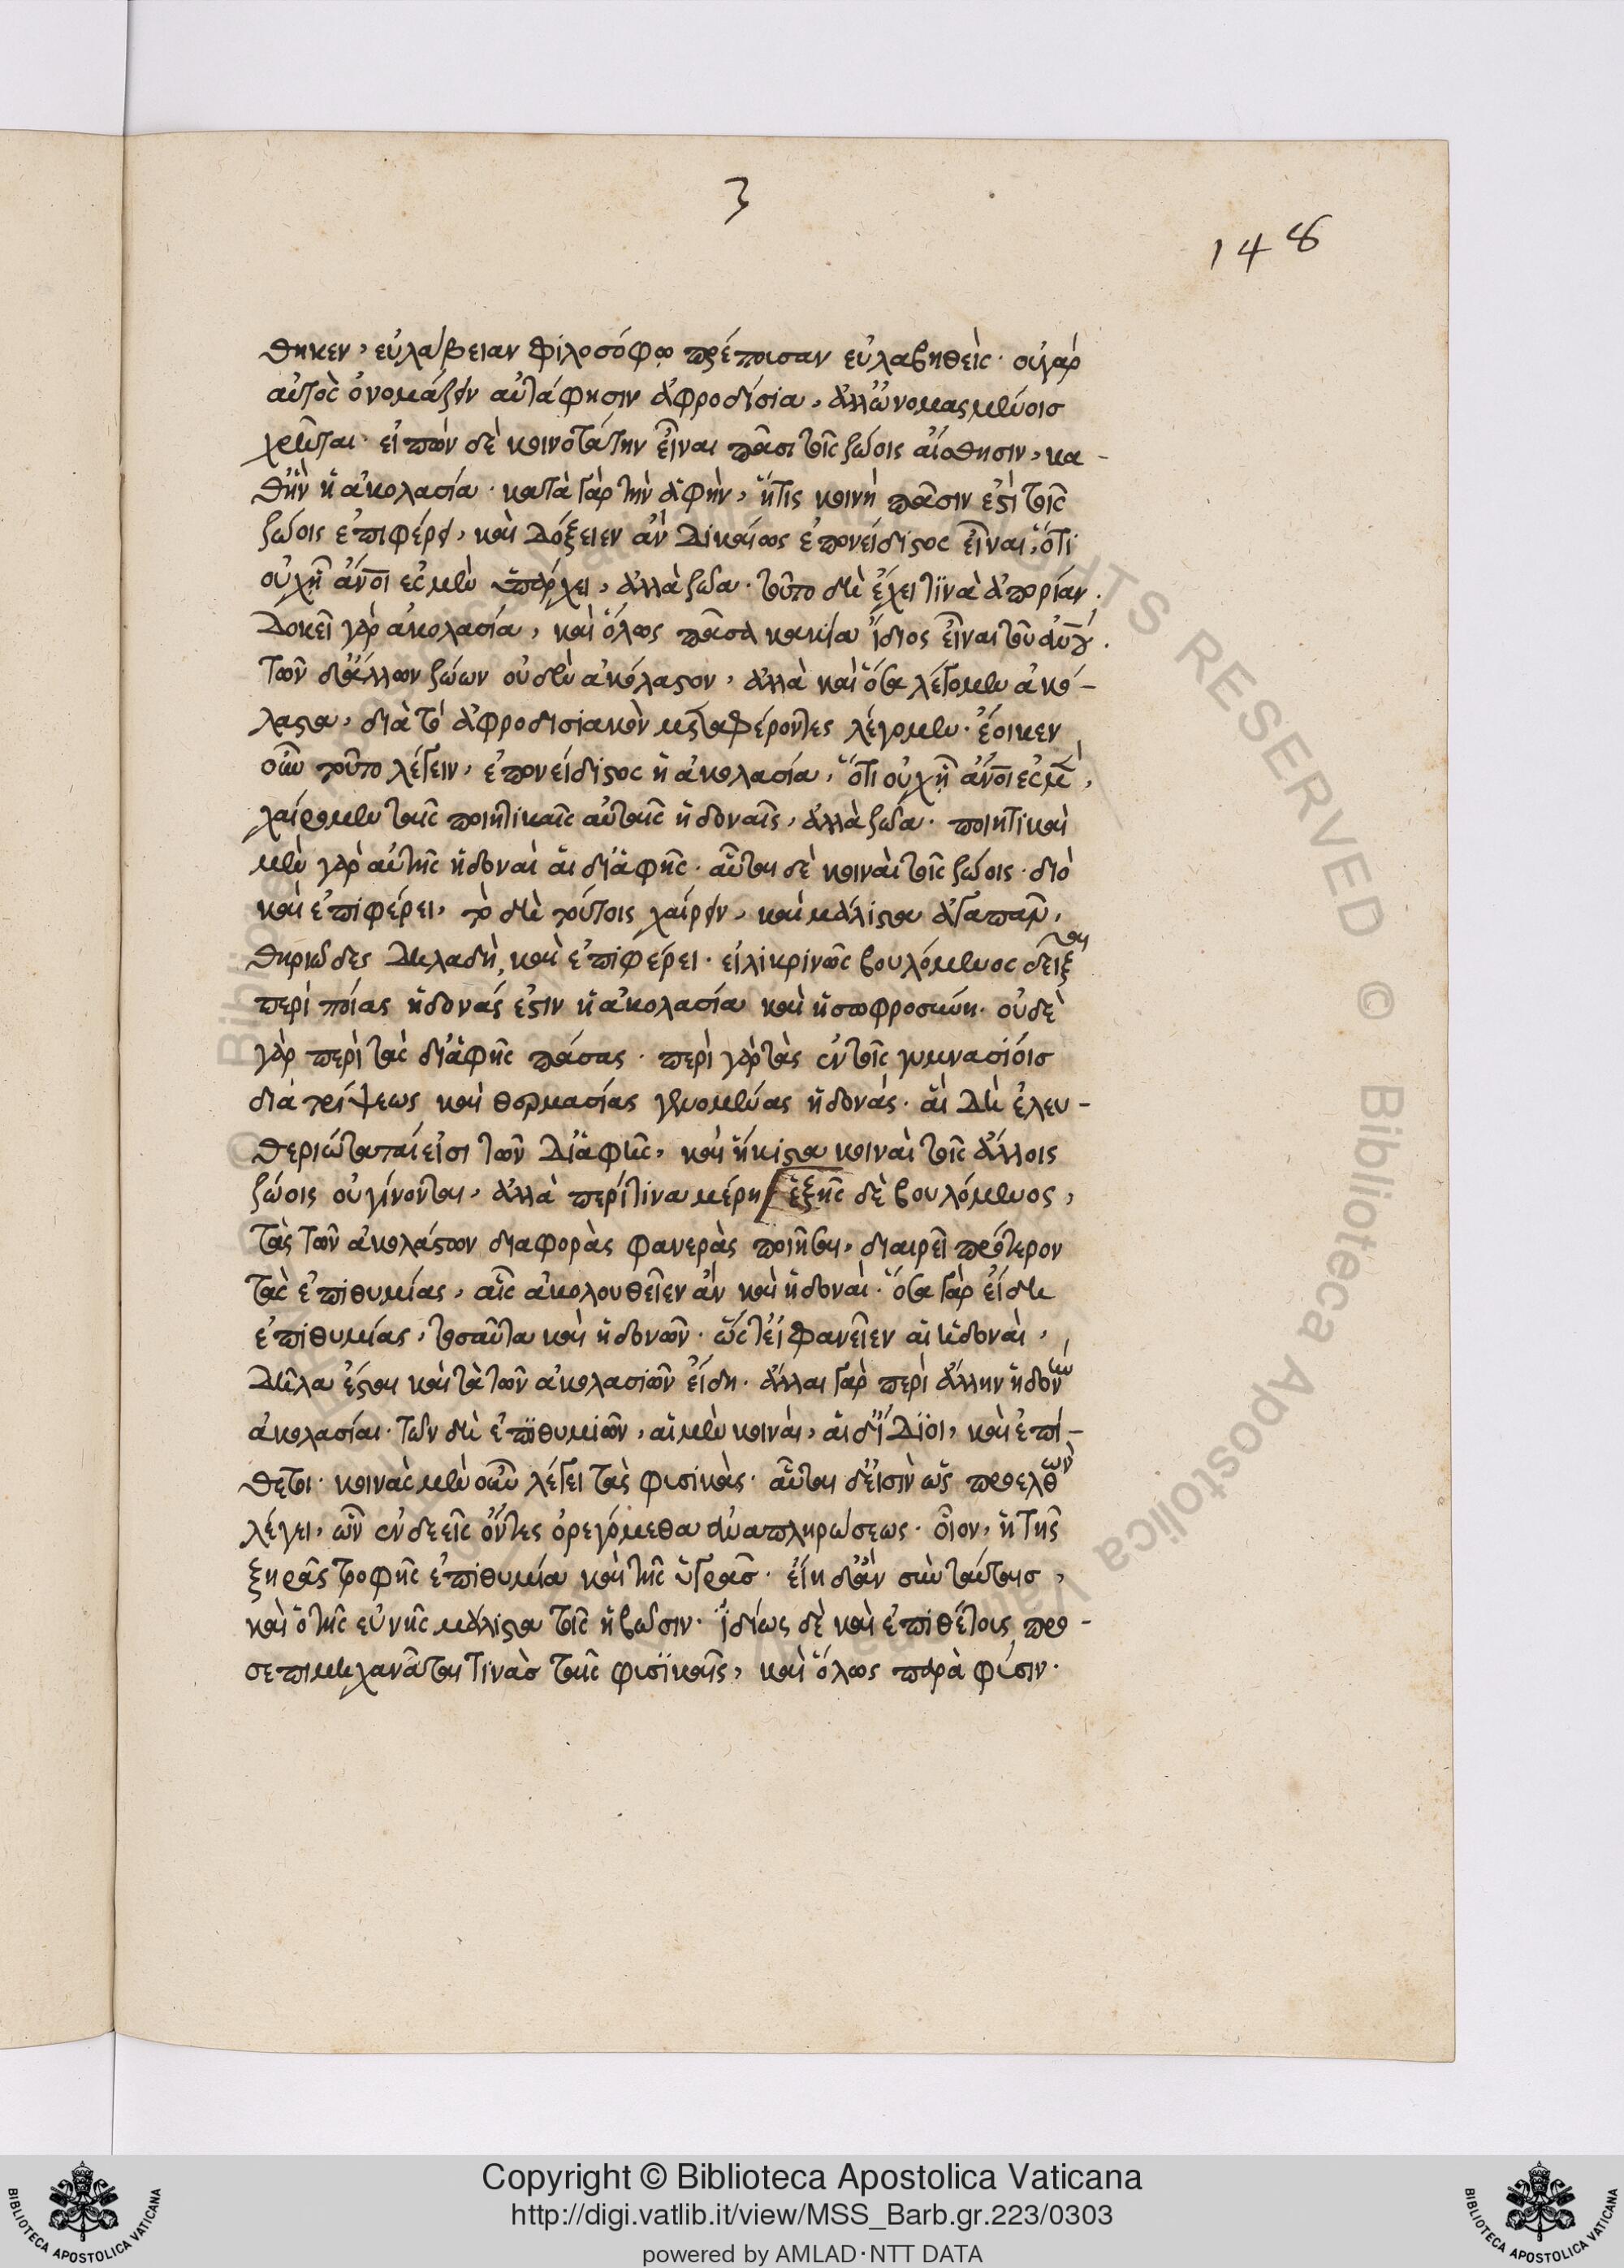 3
148
θηκεν, εὐλάβειαν φιλοσόφῳ πρέπουσαν εὐλαβηθεὶς· οὐ γὰρ
αὐτὸς ὀνομάζειν αὐτά φησιν ἀφροδίσια, ἀλλ' ὠνομασμένοις
χρῶται· εἰπὼν δὲ κοινοτάτην εἶναι πᾶσι τοῖς ζώοις αἴσθησιν, κα-
θ' ἣν ἡ ἀκολασία· κατὰ γὰρ τὴν ἁφὴν, ἥτις κοινὴ πᾶσιν ἐστὶ τοῖς
ζώοις ἐπιφέρει, καὶ δόξειεν ἂν δικαίως ἐπονείδιστος εἶναι, ὅτι
οὐχ ᾗ ἄνοί ἐσμὲν ὑπάρχει, ἀλλὰ ζῶα· τοῦτο δὲ ἔχει τινὰ ἀπορίαν.
δοκεῖ γὰρ ἀκολασία, καὶ ὅλως πᾶσα κακία ἴδιος εἶναι τοῦ ἀνου.
τῶν δ' ἄλλων ζώων οὐδὲν ἀκόλαστον, ἀλλὰ καὶ ὅσα λέγομεν ἀκό-
λαστα, διὰ τὸ ἀφροδισιακὸν μεταφέροντες λέγομεν. ἔοικεν
οὖν τοῦτο λέγειν, ἐπονείδιστος ἡ ἀκολασία, ὅτι οὐχ ᾗ ἄνοί ἐσμὲν,
χαίρομεν ταῖς ποιητικαῖς αὐταῖς ἡδοναῖς, ἀλλὰ ζῶα· ποιητικαὶ
μὲν γὰρ αὐτῆς ἡδοναὶ αἱ δι' ἁφῆς. αὗται δὲ κοιναὶ τοῖς ζώοις· διὸ
καὶ ἐπιφέρει, τὸ δὲ τούτοις χαίρειν, καὶ μάλιστα ἀγαπᾶν,
θηριῶδες δηλαδὴ, καὶ ἐπιφέρει. εἰλικρινῶς βουλόμενος δεῖξαι
περὶ ποίας ἡδονάς ἐστιν ἡ ἀκολασία καὶ ἡ σωφροσύνη. οὐδὲ
γὰρ περὶ τὰς δι' ἁφῆς πάσας· περὶ γὰρ τὰς ἐν τοῖς γυμνασίοις
διὰ τρίψεως καὶ θερμασίας γενομένας ἡδονάς. αἳ δὴ ἐλευ-
θεριώταταί εἰσι τῶν δι' ἁφῆς, καὶ ἥκιστα κοιναὶ τοῖς ἄλλοις
ζώοις οὐ γίνονται, ἀλλὰ περί τινα μέρη ἑξῆς δὲ βουλόμενος,
τὰς τῶν ἀκολάστων διαφορὰς φανερὰς ποιῆσαι, διαιρεῖ πρότερον
τὰς ἐπιθυμίας, αἷς ἀκολουθεῖεν ἂν καὶ ἡδοναὶ. ὅσα γὰρ εἴδη
ἐπιθυμίας, τοσαῦτα καὶ ἡδονῶν· ὥστ' εἰ φανεῖεν αἱ ἡδοναὶ,
δῆλα ἔσται καὶ τὰ τῶν ἀκολασιῶν εἴδη. ἄλλαι γὰρ περὶ ἄλλην ἡδονὴν
ἀκολασίαι. τῶν δὲ ἐπιθυμιῶν, αἱ μὲν κοιναὶ, αἱ δ' ἴδιοι, καὶ ἐπί-
θετοι. κοινὰς μὲν οὖν λέγει τὰς φυσικὰς· αὗται δ' εἰσὶν ὡς προελθὼν
λέγει, ὧν ἐνδεεῖς ὄντες ὀρεγόμεθα ἀναπληρώσεως· οἷον, ἡ τῆς
ξηρᾶς τροφῆς ἐπιθυμία καὶ τῆς ὑγρᾶς. εἴη δ' ἂν σὺν ταύταις,
καὶ ὁ τῆς εὐνῆς μάλιστα τοῖς ἡβῶσιν. ἰδίως δὲ καὶ ἐπιθέτοις προ-
σεπιμηχανᾶται τινὰς ταῖς φυσικαῖς, καὶ ὅλως παρὰ φύσιν.
Copyright © Biblioteca Apostolica Vaticana
http://digi.vatlib.it/view/MSS_Barb.gr.223/0303
powered by AMLAD·NTT DATA